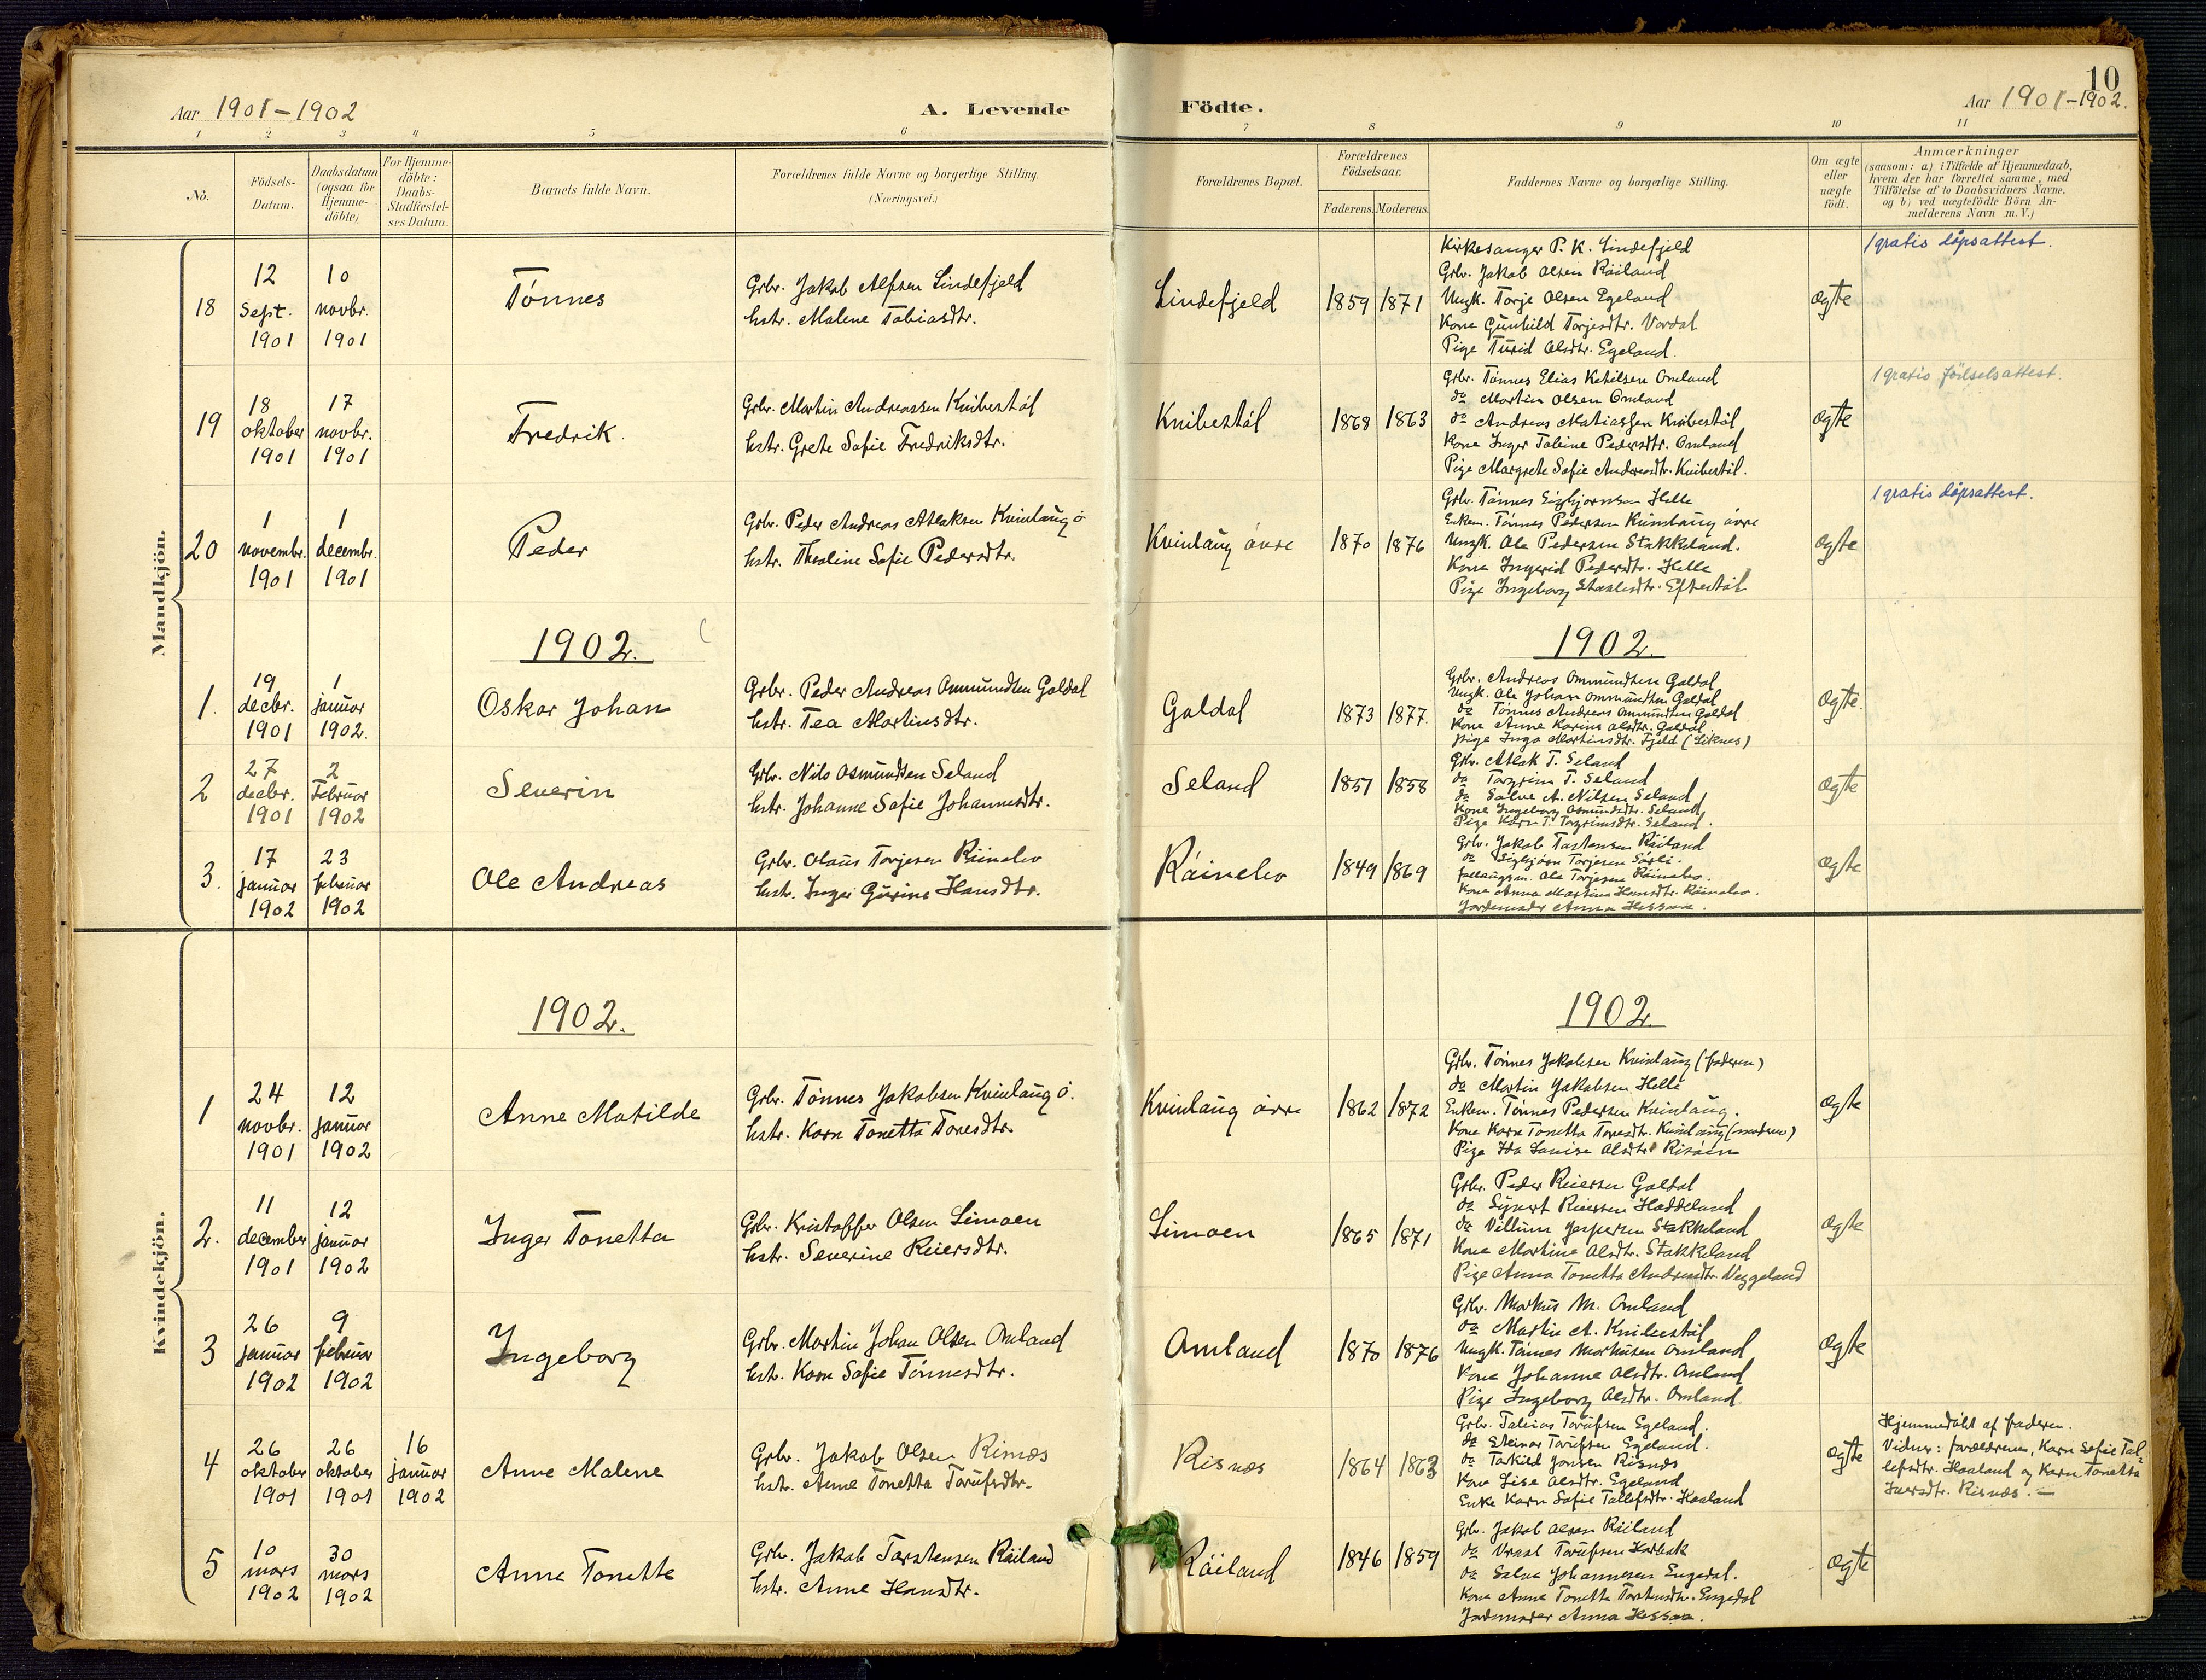 10
Aar 1901-1902
A. Levende
Födte.
Aar 1901-1902.
1 2 3 4 5 6 7 8 9 10 11
No.
Födsels-
Datum.
Daabsdatum
(ogsaa for
Hjemme-
döbte)
For Hjemme-
döbte:
Daabs-
Stadfæstel-
ses Datum.
Barnets fulde Navn.
Forældrenes fulde Navne og borgerlige Stilling.
(Næringsvei.)
Forældrenes Bopæl.
Forældrenes
Födselsaar.
Faderens. Moderens.
Faddernes Navne og borgerlige Stilling.
Om ægte
eller
uægte
födt.
Anmærkninger
(saasom: a) i Tilfælde af Hjemmedaab,
hvem der har forrettet samme, med
Tilföielse af to Daabsvidners Navne,
og b) ved uægtefödte Börn An-
melderens Navn m.V.)
Mandkjön.
18
12
Sept.
1901
10
novbr.
1901
Tönnes
Grbr. Jakob Alfsen Lindefjeld
hstr. Malene Tobiasdtr.
Lindefjeld
1859 1871
Kirkesanger P. K. Lindefjeld
Grbr. Jakob Olsen Röiland
Ungk. Torje Olsen Egeland
Kone Gunhild Torjesdtr. Vordal
Pige Turid Olsdtr. Egeland
ægte
1 gratis dåpsattest.
19
18
oktober
1901
17
novbr.
1901
Fredrik.
Grbr. Martin Andreassen Knibestöl
hstr. Grete Sofie Fredriksdtr.
Knibestöl
1868 1863
Grbr. Tönnes Elias Ketilsen Omland
do Martin Olsen Omland
do Andreas Matiassen Knibestöl
Kone Inger Taline Pedersdtr. Omland
Pige Margrete Sofie Andreasdtr. Knibestöl.
ægte
1 gratis födselsattest.
20
1
novembr.
1901
1
decembr.
1901
Peder
Grbr. Peder Andreas Atlaksen Kvinlaug ö
hstr. Thealine Sofie Pedersdtr.
Kvinlaug övre
1870 1876
Grbr. Tönnes Sigbjörnsen Helle
Enkem. Tönnes Pedersen Kvinlaug övre
Ungk. Ole Pedersen Stakkeland.
Kone Ingerid Pedersdtr. Helle
Pige Ingeborg Staalesdtr. Eftestöl
ægte
1 gratis dåpsattest.
1902.
1902.
1.
19
decbr.
1901
1
januar
1902.
Oskar Johan
Grbr. Peder Andreas Ommundsen Galdal
hstr. Tea Martinsdtr.
Galdal
1873 1877.
Grbr. Andreas Ommundsen Galdal
Ungk. Ole Johan Ommundsen Galdal
do Tönnes Andreas Ommundsen Galdal
Kone Anne Karine Olsdtr. Galdal.
Pige Inga Martinsdtr. Fjeld (Liknes)
ægte.
2
27
decbr.
1901
2
Februar
1902
Severin
Grbr. Nils Osmundsen Seland
hstr. Johanne Sofie Johannesdtr.
Seland
1857 1858
Grbr. Atlak T. Seland
do Torgrim T. Seland
do Salve A. Nilsen Seland
Kone Ingeborg Osmundsdtr. Seland
Pige Karn T. Torgrimsdtr. Seland.
ægte
3.
17
januar
1902
23
februar
1902
Ole Andreas
Grbr. Olaus Torjesen Röinebo
hstr. Inger Gurine Hansdtr.
Röinebo
1849 1869
Grbr. Jakob Tarstensen Röiland
do Sigbjörn Torjesen
Ole Torjesen Röinebo.
Kone Anna Martine Hansdtr. Röinebo.
Jordemoder Anna Hessaa.
ægte
Kvindekjön.
1902.
1902
1
24
novbr.
1901
12
januar
1902
Anne Matilde
Grbr. Tönnes Jakobsen Kvinlaug ö.
hstr. Karn Tonetta Tonesdtr.
Kvinlaug övre
1862 1872
Grbr. Tönnes Jakobsen Kvinlaug (faderen)
do Martin Jakobsen Helle
Enkem. Tönnes Pedersen Kvinlaug.
Kone Karn Tonetta Tonesdtr. Kvinlaug (moderen)
Pige Ida Lovise Olsdtr.
ægte
2.
11
december
1901
12
januar
1902
Inger Tonetta
Grbr. Kristoffer Olsen Limoen
hstr. Severine Reiersdtr.
Limoen
1865 1871
Grbr. Peder Reiersen Galdal
do Sigvert Reiersen Haddeland
do Villum Jespersen Stakkeland
Kone Martine Olsdtr. Stakkeland
Pige Anna Tonetta Andreasdtr. Veggeland
ægte
3
26
januar
1902
9
februar
1902
Ingeborg
Grbr. Martin Johan Olsen Omland
hstr. Karn Sofie Tönnesdtr.
Omland
1870 1876
Grbr. Markus M. Omland
do Martin A. Knibestöl
Ungk. Tönnes Markusen Omland
Kone Johanne Olsdtr. Omland
Pige Ingeborg Olsdtr. Omland
ægte
4
26
oktober
1901
26
oktober
1901
16
januar
1902
Anne Malene
Grbr. Jakob Olsen Risnæs
hstr. Anne Tonetta Torufsdtr.
Risnæs
1864 1863
Grbr. Tobias Torufsen Egeland.
do Steinar Torufsen Egeland.
do Torkild Jonsen Risnæs
Kone Lise Olsdtr. Egeland
Enke Karn Sofie Tallefsdtr. Haaland
ægte
Hjemmedöbt af faderen.
Vidner: forældrene, Karn Sofie Tal-
lefsdtr. Haaland og Karn Tonetta
Iversdtr. Risnæs. —
5
10
mars
1902
30
mars
1902
Anne Tonette
Grbr. Jakob Tarstensen Röiland
hstr. Anne Hansdtr.
Röiland
1846 1859
Grbr. Jakob Olsen Röiland
do Vraal Torufsen
do Salve Johannesen Engedal.
Kone Anne Tonette Torstensdtr. Engedal
Jordmoder Anna Hessaa.
ægte